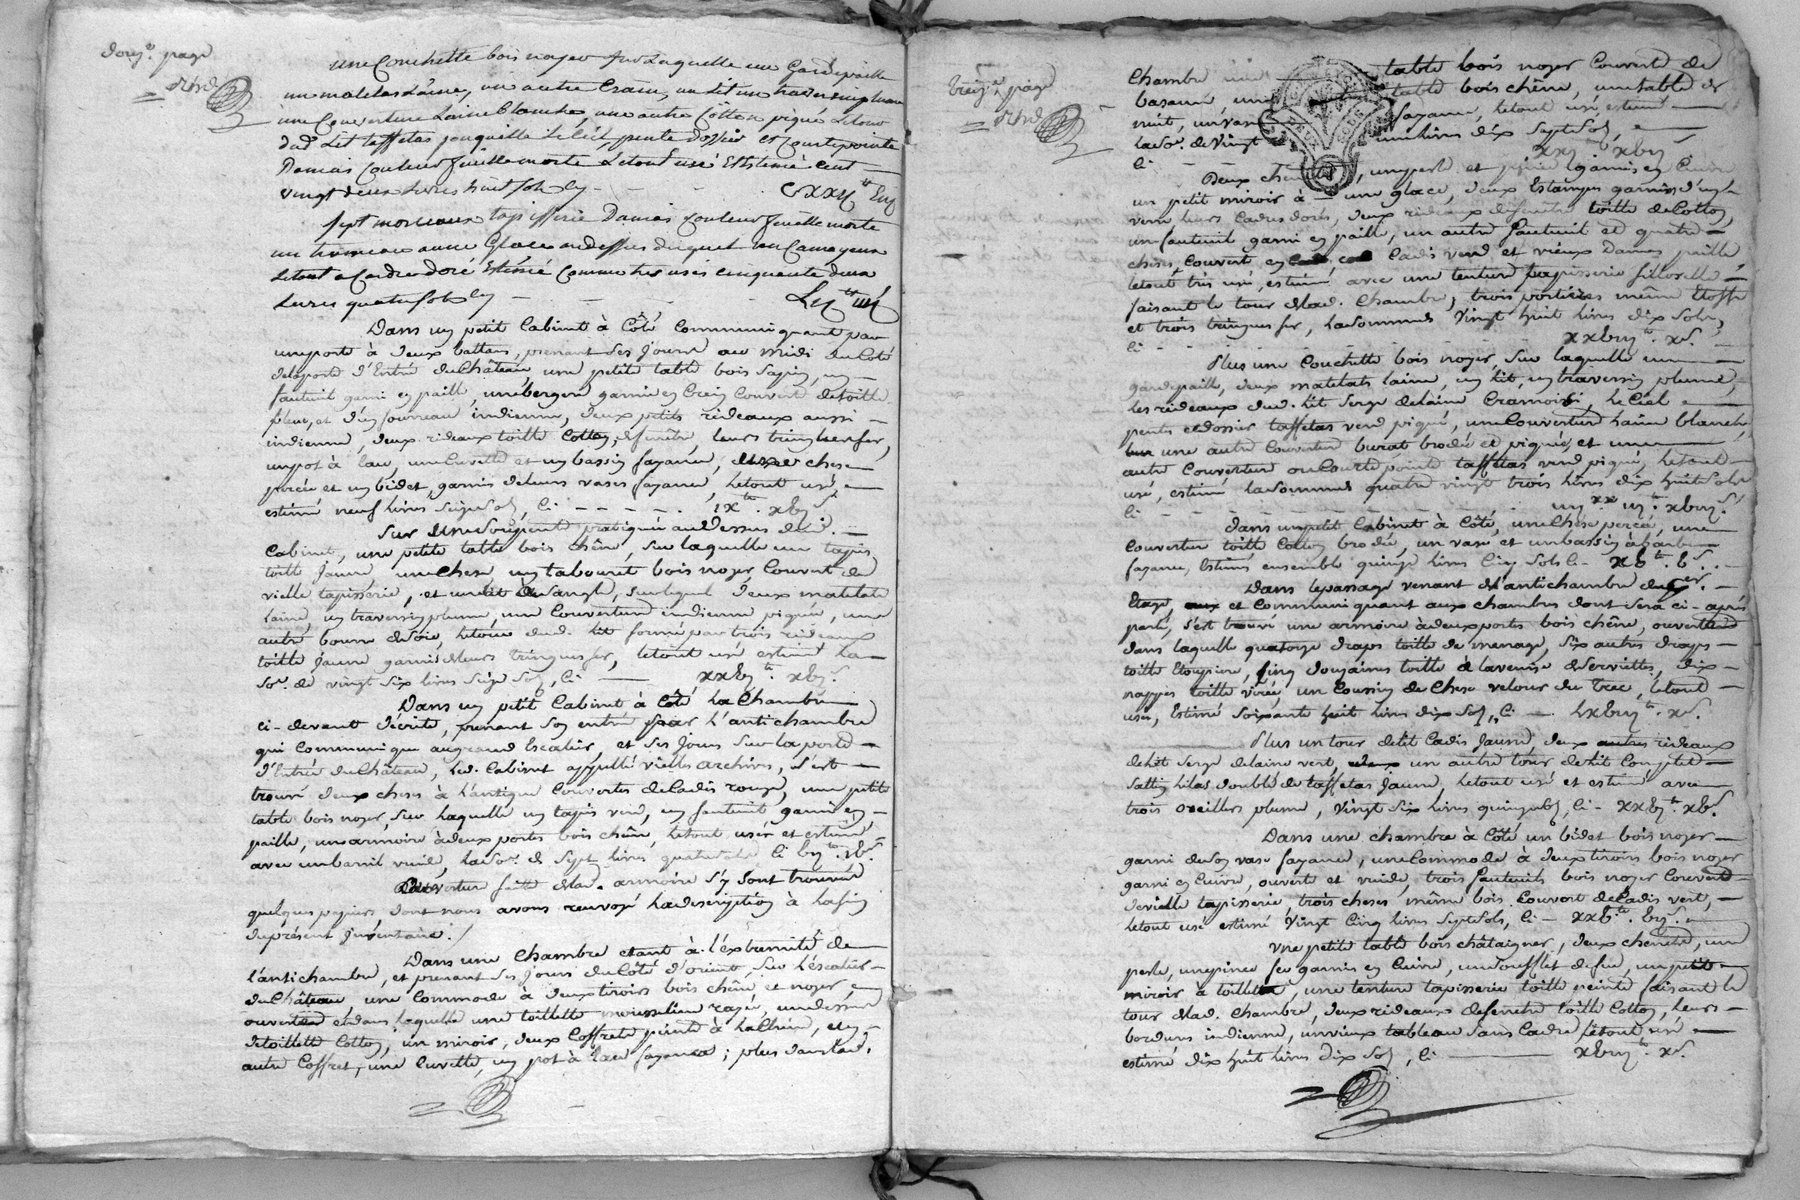 douz.e page
une Couchette bois noyer sur Laquelle une Gardepaille
un matelas Laine, un autre Crain, un Lit un traversin plume
une Couverture Laine Blanche une autre Cotton piqué Le tour
dud Lit taffetas jonquille Le Ciel, pente dossier et Courtepointe
Damas Couleur feuille morte Le tout usé Estimé cent
vingt deux Livres huit sols cy
Sept morceaux tapisserie Damas Couleur feuille morte
un trumeau avec Glace au dessus duquel un Camayeux
Le tout a Cadre doré Estimé Comme tres usés cinquante deux
Livres quatre sols cy
Dans un petit Cabinet à Côté Communiquant par
une porte à deux battans, prenant ses jours au midi du Coté
de la porte d'Entrée du Château une petite table bois sapin, un
fauteuil garni en paille, une bergere garnie en Crein Couvert de toille
fleur, et d'un fourreau indienne, deux petits rideaux aussi
indienne, deux rideaux toille Cotton, de fenêtre, leurs tringles en fer,
un pot à l'au, une Cuvette et un bassin fayance, chese
percée et un bidet, garnis de leurs vases fayance, le tout usé
estimé neuf livres seize sols, Ci ix.tt xvj.s
Sur une Soupente pratiquée au Dessus dud.
Cabinet, une petite table bois chêne, sur laquelle un tapis
toille jaune une chese un tabouret bois noyer Couvert de
vielle tapisserie, et un lit de sangle, sur lequel deux matelats
laine, un traversin plume, une Couverture indienne piquée, une
autre bourre de soie, le tour dud. lit formé par trois rideaux
toille jaune garnis de leurs tringues fer, le tout usé estimé la
so.e de vingt six livres seize sols, Ci xxvj.tt xvj.s
Dans un petit Cabinet à Côté la Chambre
ci-devant décrite, prenant son entrée par l'antichambre
qui Communique au grand Escalier, et ses jours sur la porte
d'Entrée du Château, led. Cabinet appellé vielles archives, s'est
trouvé deux cheses à l'antique Couvertes de Cadis rouge, une petite
table bois noyer, sur laquelle un tapis verd, un fauteuil garni en
paille, une armoire à deux portes bois chêne, le tout usé et estimé
avec un barril vuide, la so.e de sept livres quatre sols Ci
ouverture faite de lad. armoire s'y sont trouvés
quelques papiers, dont nous avons renvoyé la description à la fin
du présent Inventaire.
Dans une Chambre étant à l'éxtremité de
l'antichambre, et prenant ses jours du Côté d'orient, sur l'escalier
du Château, une Commode à deux tiroirs bois chêne et noyer
ouverte et dans laquelle une toillette mousseline rayé, un dessus
de toillette Cotton, un miroir, deux Coffrets peints à la Chine, un
autre Coffret, une Cuvette, un pot à l'au fayance; plus dans lad.
treiz.e page
Chambre une table bois noyer Couvert de
basane, une table bois chêne, une table de
nuit, un vase fayance, le tout usé, estimé
la so.e de vingt un livres dix sept sols,
Ci xxj.tt xvij.s
Deux chenets, une perle et garnis en Cuivre
un petit miroir à une glace, deux Estampes garnies d'un
verre leurs Cadres dorés, deux rideaux de fenêtre toille de Cotton,
un fauteuil garni en paille, un autre fauteuil et quatre
cheses Couvert en Cadis verd et vieux Damas paille
le tout très usé, estimé avec une tenture tapisserie filloselle
faisant le tour de lad. Chambre, trois portières même Etoffe
et trois tringues fer, la somme de vingt huit livres dix sols,
Ci xxviij.tt x.s
Plus une Couchette bois noyer, sur laquelle une
gardepaille, deux matelats laine, un lit, un traversin plume,
les rideaux dud. lit serge de laine Cramoisi, le Ciel
pentes et dossier taffetas verd piqué, une Couverture laine blanche,
une autre Couverture burat brodé et piquée, et une
autre Couverture ou Courtepointe taffetas verd piqué, le tout
usé, estimé la somme de quatre vingt trois livres dix huit sols
Ci iiij.xx iij.tt xviij.s
Dans un petit Cabinet à Côté, une Chese percée, une
Couverture toille Cotton brodée, un vase, et un bassin à barbe
fayance, Estimés ensemble quinze livres Cinq sols Ci xv.tt v.s
Dans le passage venant de l'antichambre du 1er
Etage, et Communiquant aux chambres dont sera ci-après
parlé, s'est trouvé une armoire à deux portes bois chêne, ouverte
dans laquelle quatorze draps toille de menage, six autres draps
toille Etoupiere, Cinq douzaines toille de servietes, dix
nappes toille, un Coussin de Chese velour du trec, le tout
usé, Estimé soixante huit livres dix sols, Ci lxviij.tt x.s
Plus un tour de lit Cadis jaune, deux autres rideaux
de lit serge de laine vert, un autre tour de lit Complet
sattin lilas doublé de taffetas jaune, le tout usé et estimé avec
trois oreillers plume, vingt six livres quinze sols, Ci xxvj.tt xv.s
Dans une chambre à Côté un bidet bois noyer
garni de son vase fayance, une Commode à deux tiroirs bois noyer
garni en Cuivre, ouverte et vuide, trois fauteuils bois noyer Couvert
de vielle tapisserie, trois cheses même bois Couvert de Cadis vert,
le tout usé estimé vingt Cinq livres sept sols, Ci xxv.tt vij.s
Une petite table bois châtaigner, deux chenets, une
perle, une pince feu garnis en Cuivre, un soufflet de feu, un petit
miroir à toillette, une tenture tapisserie toille peinte faisant le
tour de lad. Chambre, deux rideaux de fenêtre toille Cotton, leurs
bordures indienne, un vieux tableau sans Cadre, le tout usé
estimé dix huit livres dix sols, Ci xviij.tt x.s